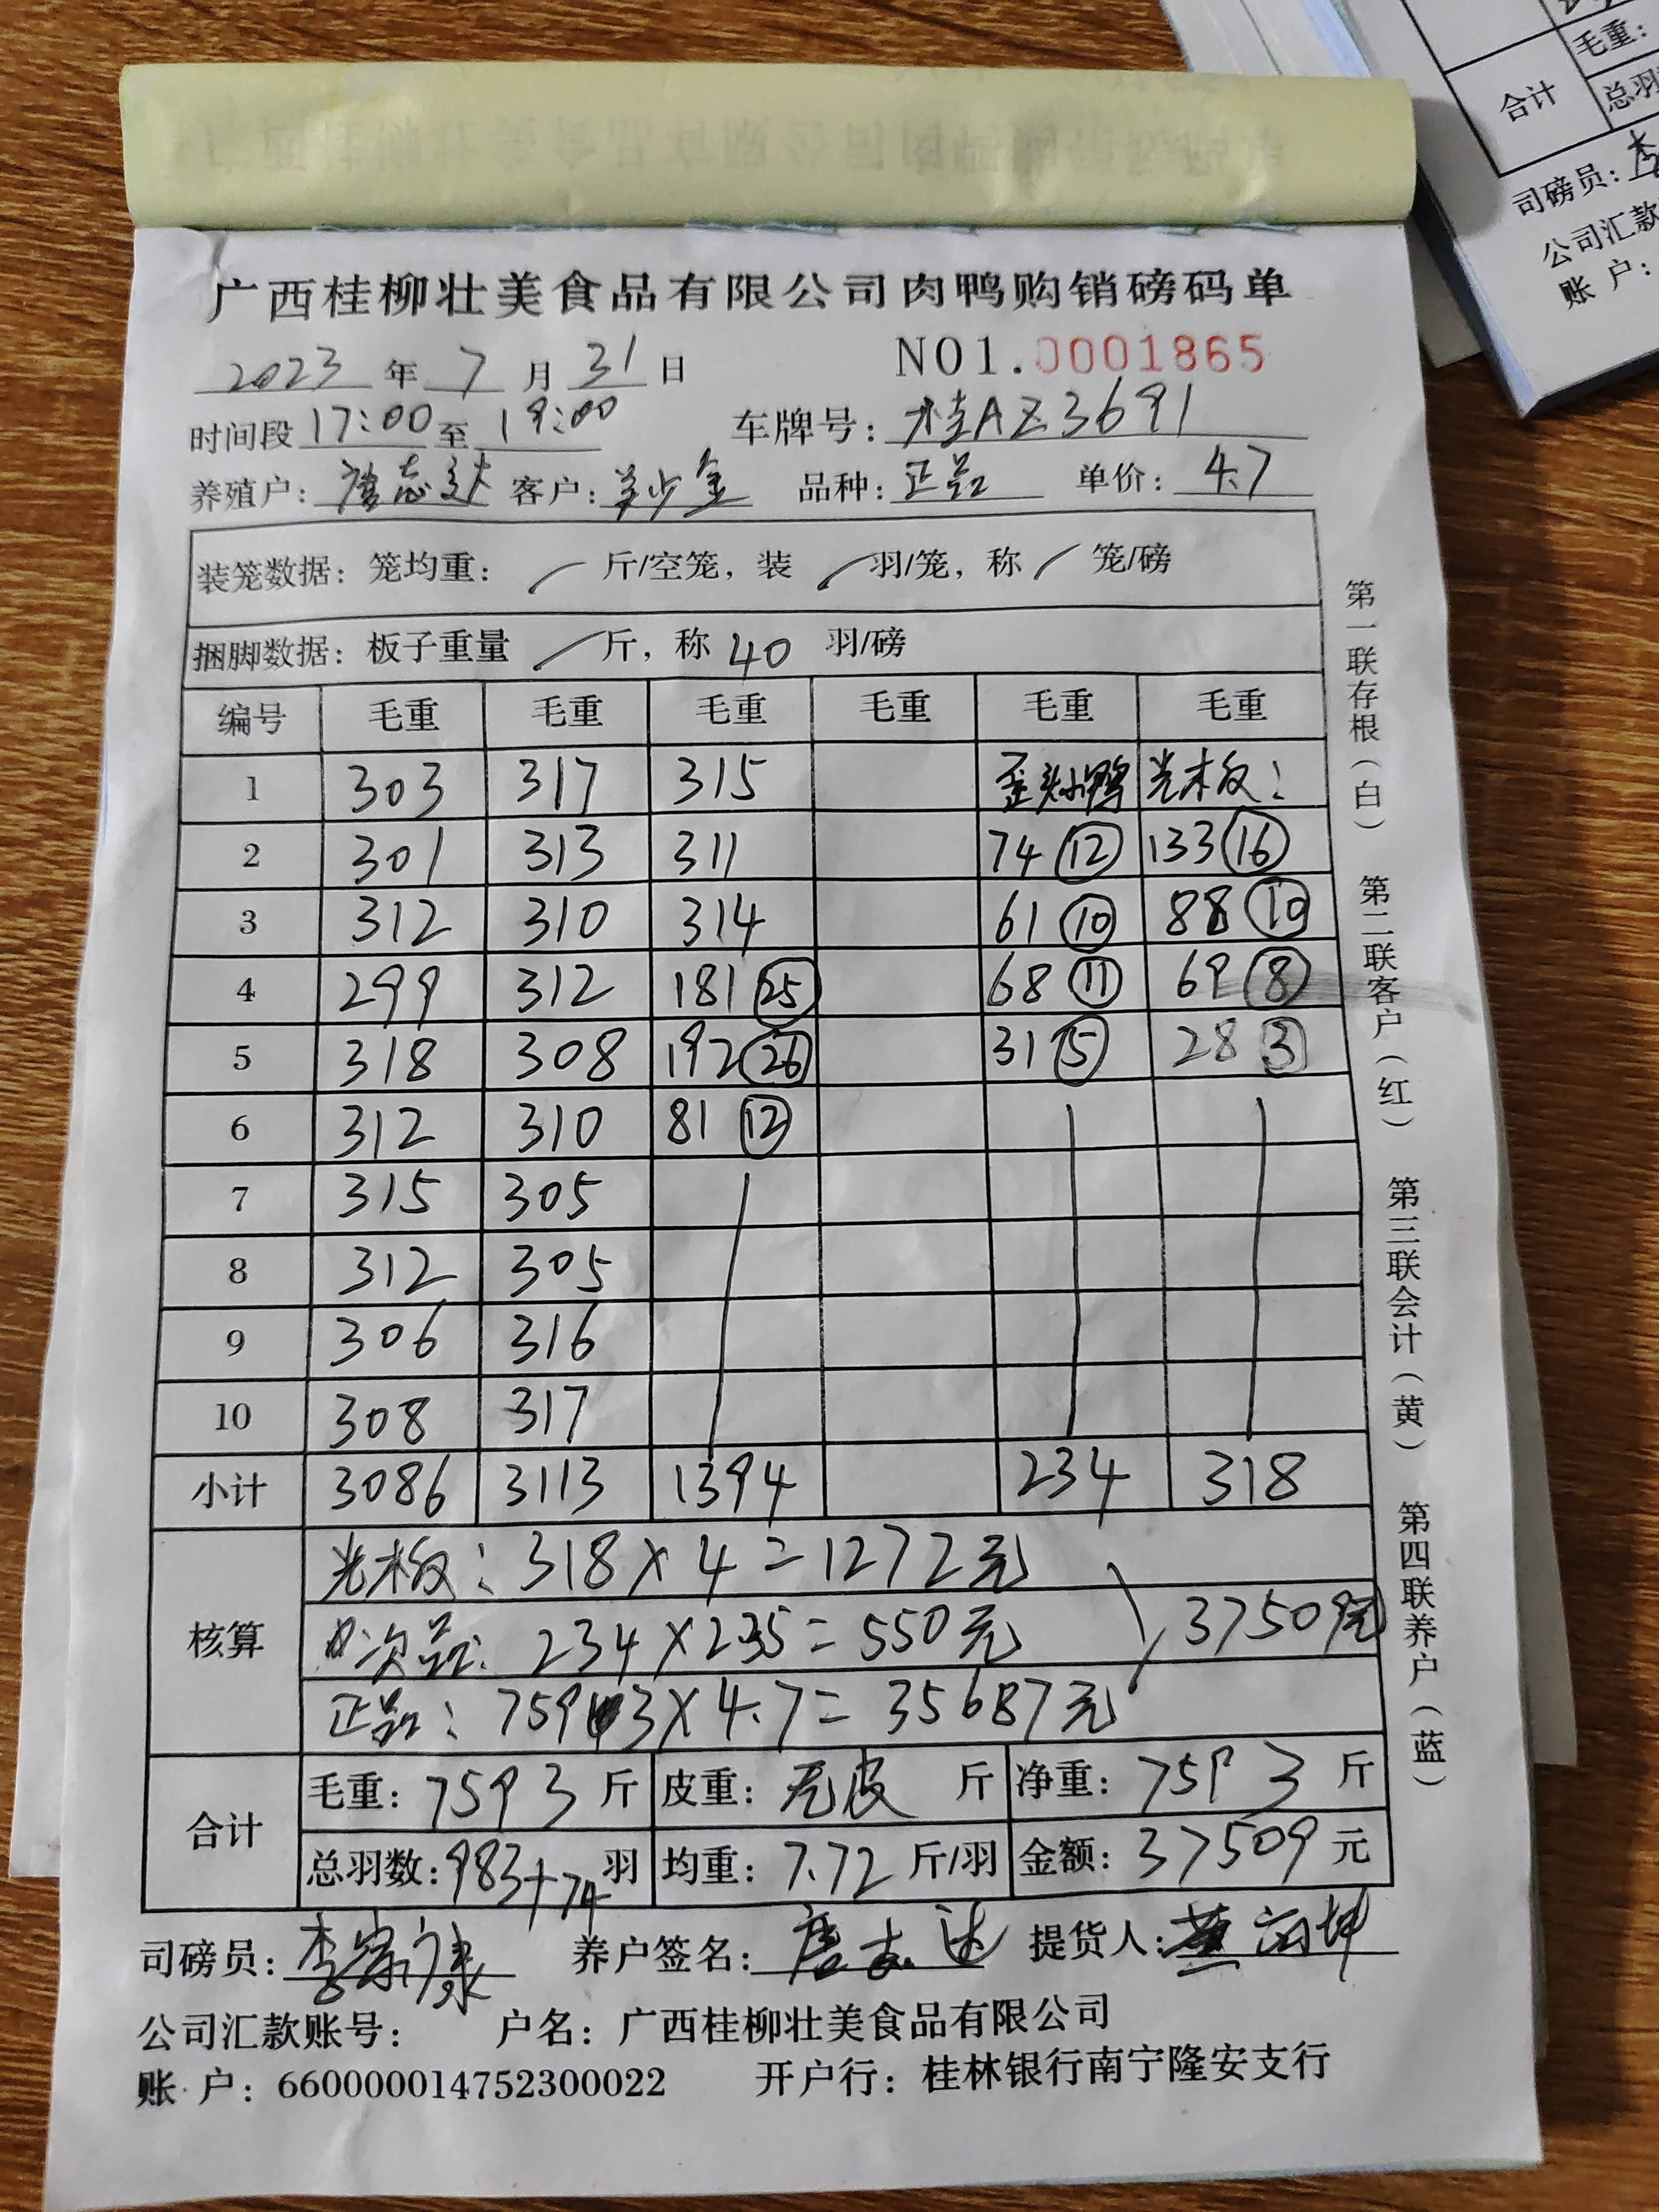 广西桂柳壮美食品有限公司肉鸭购销磅码单
2023 年 7 月 31 日 NO1.0001865
时间段 17:00 至 19:00 车牌号: 桂AZ3691
养殖户: 唐志达 客户: 少金 品种: 正品 单价: 4.7
装笼数据: 笼均重: / 斤/空笼, 装 / 羽/笼, 称 / 笼/磅
捆脚数据: 板子重量 / 斤, 称 40 羽/磅
编号 毛重 毛重 毛重 毛重 毛重 毛重
1 303 317 315 歪头小鸭 光板:
2 301 313 311 74 ⑫ 133 ⑯
3 312 310 314 61 ⑩ 88 ⑩
4 299 312 181 ㉕ 68 ⑪ 69 ⑧
5 318 308 192 ㉖ 31 ⑤ 28 ③
6 312 310 81 ⑫
7 315 305
8 312 305
9 306 316
10 308 317
小计 3086 3113 1394 234 318
核算
光板: 318×4=1272元
次品: 234×235=550元 37509元
正品: 7593×4.7=35687元
合计
毛重: 7593 斤 皮重: 无皮 斤 净重: 7593 斤
总羽数: 983+74 羽 均重: 7.72 斤/羽 金额: 37509 元
司磅员: 李康 养户签名: 唐志达 提货人: 黄坤
公司汇款账号: 户名: 广西桂柳壮美食品有限公司
账 户: 660000014752300022 开户行: 桂林银行南宁隆安支行
第一联存根(白) 第二联客户(红) 第三联会计(黄) 第四联养户(蓝)
毛重:
合计 总羽
司磅员: 李
公司汇款
账 户: